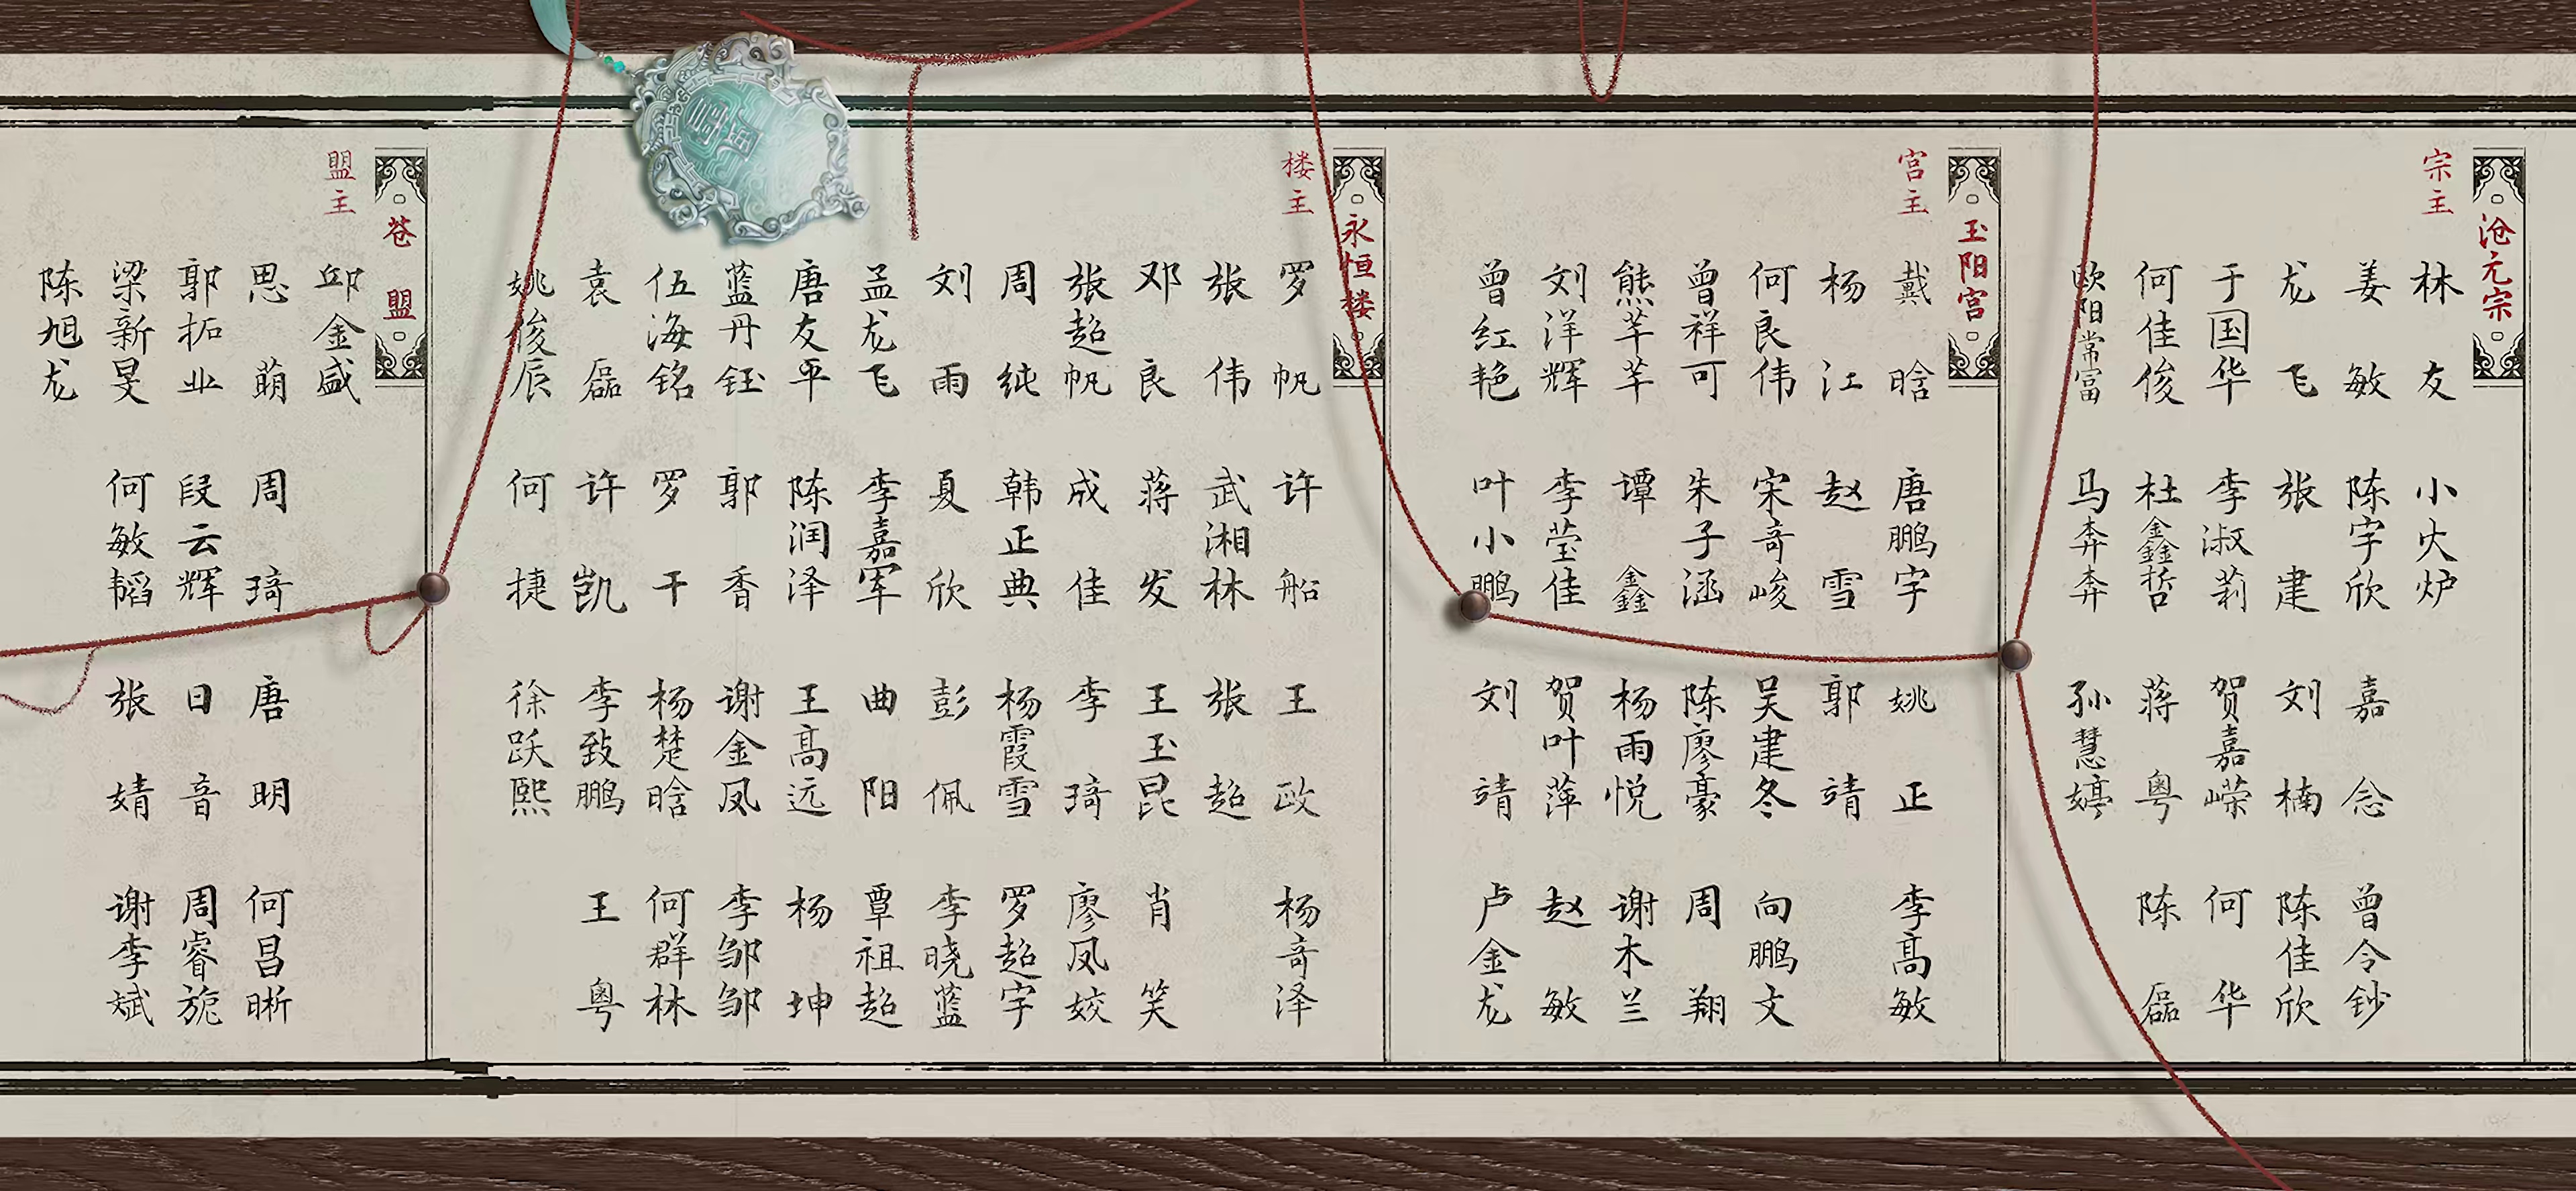 沧元宗
宗主 林友 小火炉
姜敏 陈宇欣 嘉念 曾令钞
龙飞 张建 刘楠 陈佳欣
于国华 李淑莉 贺嘉嵘 何华
何佳俊 杜鑫哲 蒋粤 陈磊
欧阳常富 马奔奔 孙慧婷
玉阳宫
宫主 戴晗 唐鹏宇 姚正 李高敏
杨江 赵雪 郭靖
何良伟 宋奇峻 吴建冬 向鹏文
曾祥可 朱子涵 陈廖豪 周翔
熊芊芊 谭鑫 杨雨悦 谢木兰
刘洋辉 李莹佳 贺叶萍 赵敏
曾红艳 叶小鹏 刘靖 卢金龙
永恒楼
楼主 罗帆 许船 王政 杨奇泽
张伟 武湘林 张超
邓良 蒋发 王玉昆 肖笑
张超帆 成佳 李琦 廖凤姣
周纯 韩正典 杨霞雪 罗超宇
刘雨 夏欣 彭佩 李晓蓝
孟龙飞 李嘉军 曲阳 覃祖超
唐友平 陈润泽 王高远 杨坤
蓝丹钰 郭香 谢金凤 李邹邹
伍海铭 罗干 杨楚晗 何群林
袁磊 许凯 李致鹏 王粤
姚俊辰 何捷 徐跃熙
苍盟
盟主 邱金盛
思萌 周琦 唐明 何昌晰
郭拓业 段云辉 日音 周睿旎
梁新旻 何敏韬 张婧 谢李斌
陈旭龙